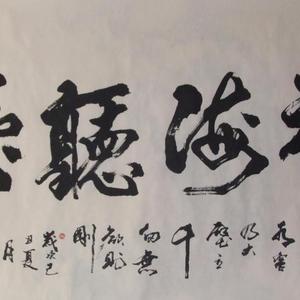 海聽
有容
乃大
壁立
千
仞無
欲則
剛
歲次己
丑夏
月